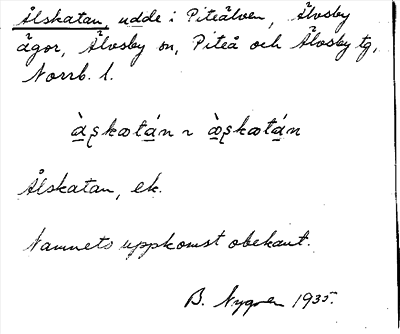 Ålskatan, udde i Piteälven, Älvsby
ägor, Älvsby sn, Piteå och Älvsby tg,
Norrb. l.
à̱ʂkætá̱n ~ æ̱̀ʂkætá̱n
Ålskatan, ek.
Namnets uppkomst obekant.
B. Nygren 1935.